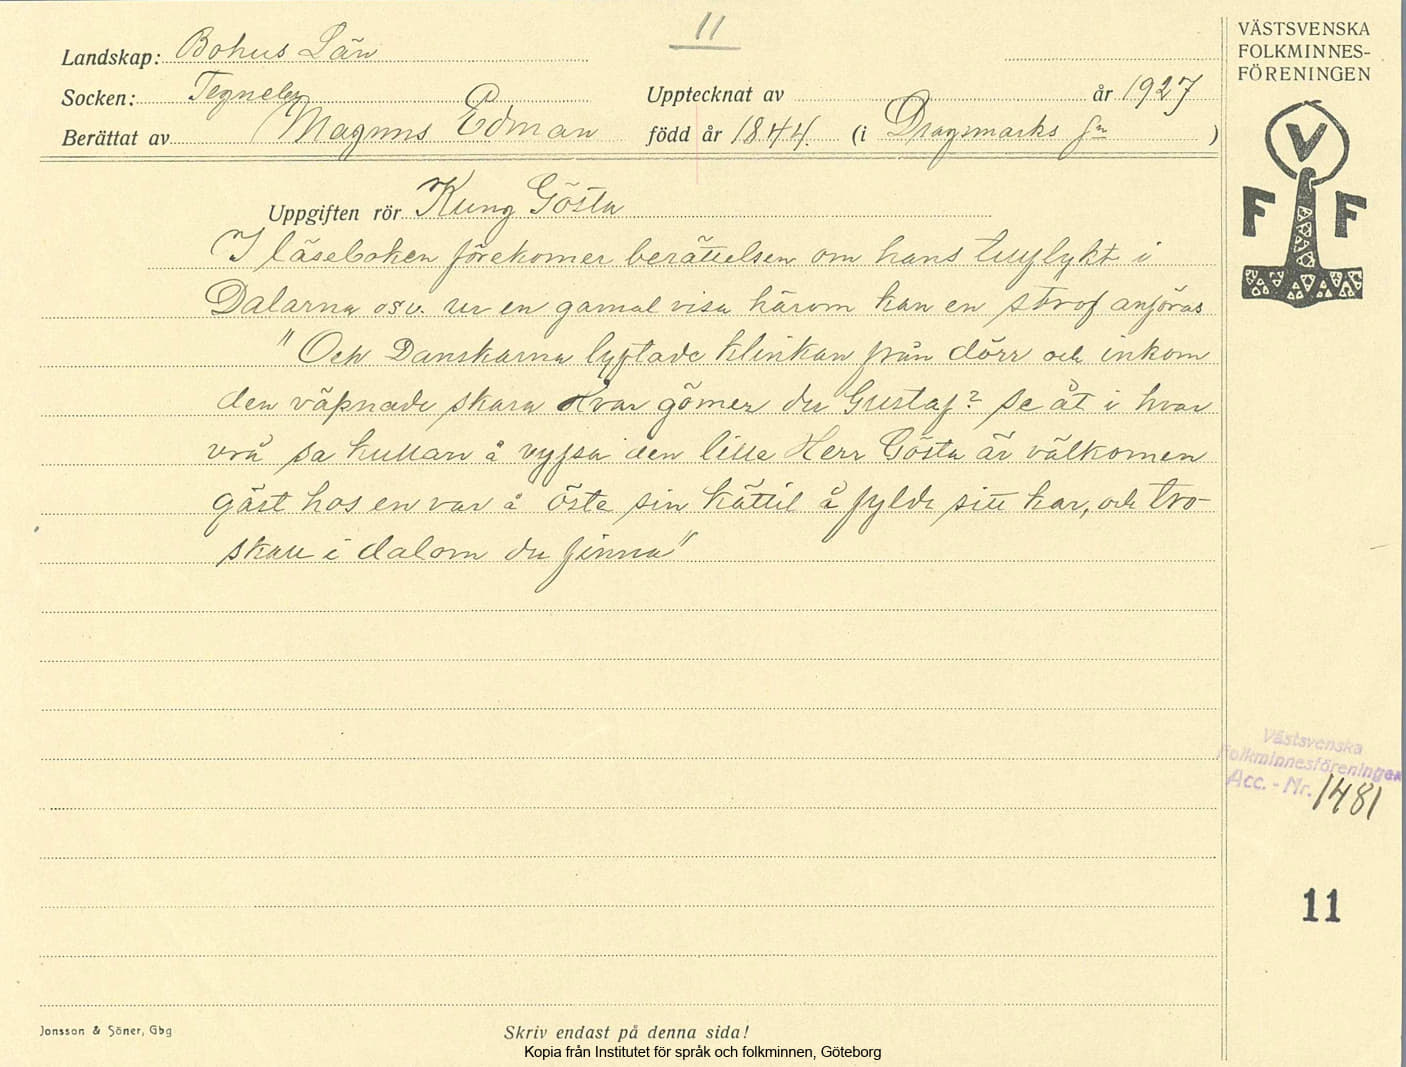 11
Landskap: Bohus Län
Socken: Tegneby
Upptecknat av år 1927
Berättat av Magnus Edman född år 1844. (i Dragsmarks sn )
VÄSTSVENSKA
FOLKMINNES-
FÖRENINGEN
V
F F
Uppgiften rör Kung Gösta
I läseboken förekomer berättelsen om hans i
Dalarna osv. ur en gamal visa härom kan en strof anföras
"Och Danskarna lyftade klinkan från dörr och inkom
den väpnade skara Hvar gömer du Gustaf? se åt i hvar
vrå sa kullan å vyssa den lille Herr Gösta är välkomen
gäst hos en var å öste sin kättil å fylde sitt kar, och tro-
skall i dalom du finna"
Västsvenska
Folkminnesföreningen
Acc. - Nr. 1481
11
Jonsson & Söner, Gbg
Skriv endast på denna sida!
Kopia från Institutet för språk och folkminnen, Göteborg